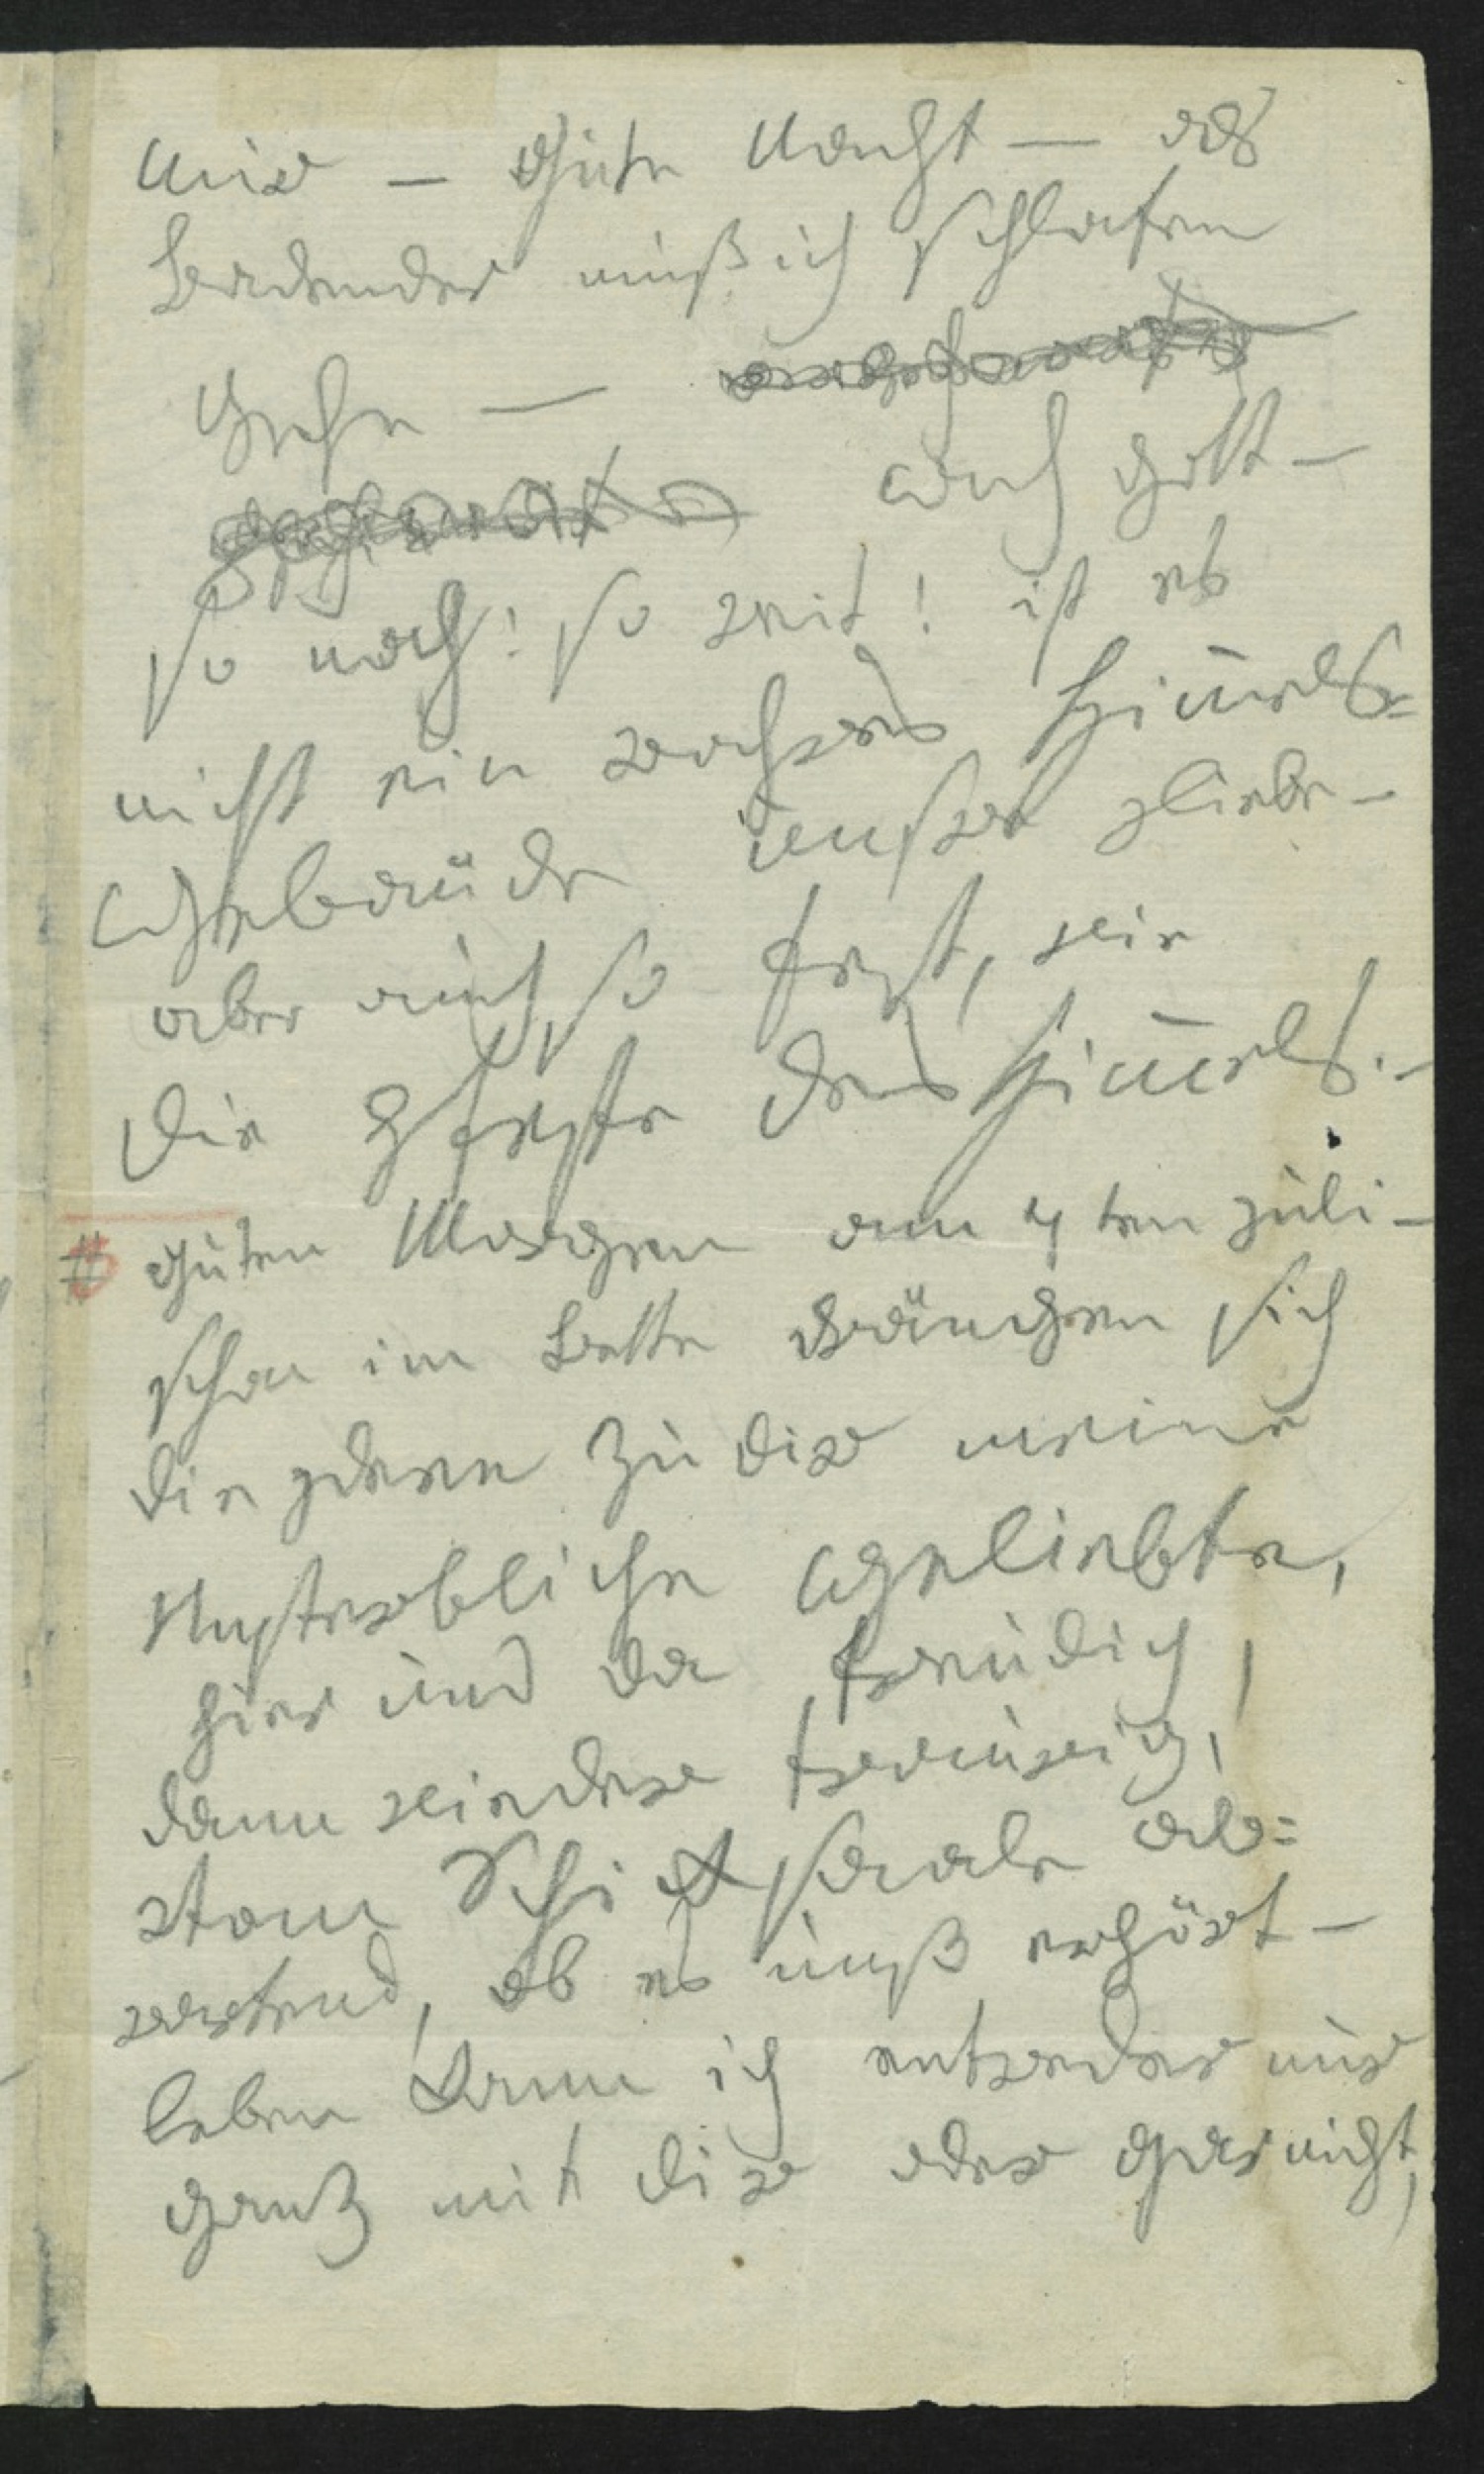 mir — Gute Nacht — als
Badender muß ich schlafen
Gehn —
ach gott —
so nah! so weit! ist es
nicht ein wahres Himels=
Gebaüde unsre Liebe —
aber auch so fest, wie
die Veste des Himels. —
guten Morgen am 7ten juli —
schon im Bette drängen sich
die Ideen zu dir meine
Unsterbliche Geliebte,
hier und da freudig,
dann wieder traurig,
vom Schicksaale ab=
wartend, ob es unß erhört —
leben kann ich entweder nur
ganz mit dir oder gar nicht,